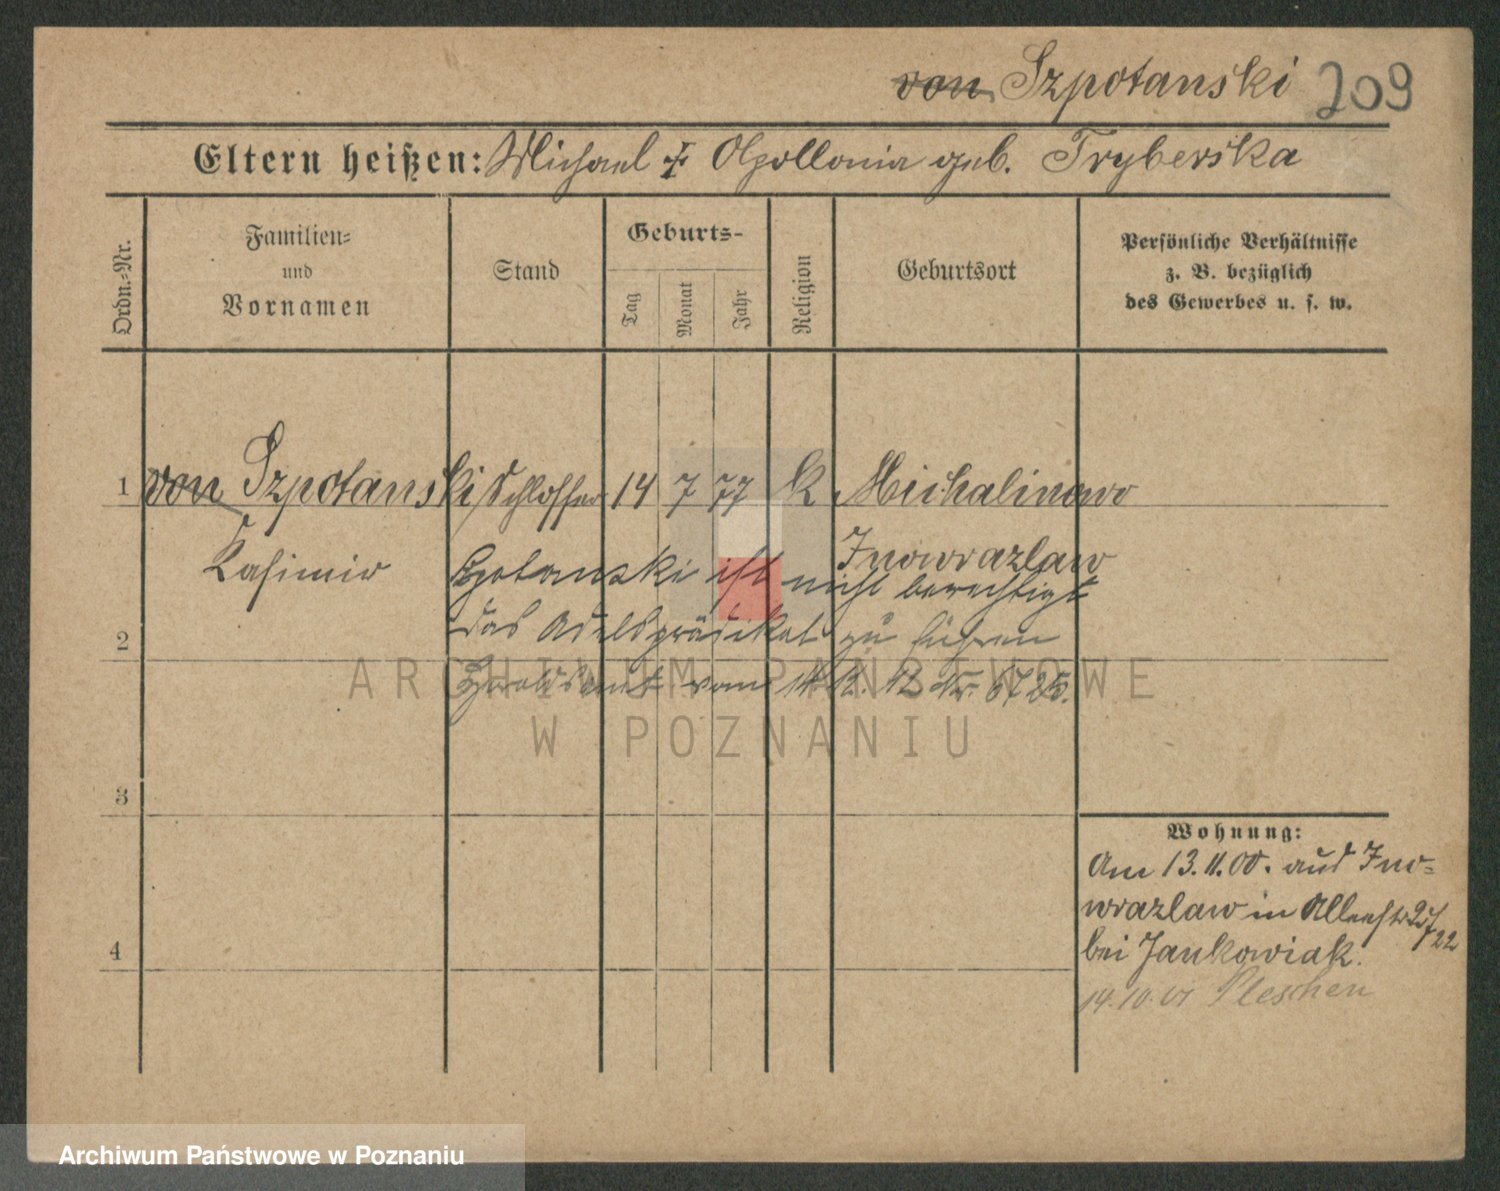 von Szpotanski 209
Eltern heißen: Michael + Apollonia geb. Tryberska
Ordn.-Nr.
Familien-
und
Vornamen
Stand
Geburts-
Tag
Monat
Jahr
Religion
Geburtsort
Persönliche Verhältnisse
z. B. bezüglich
des Gewerbes u. s. w.
1 von Szpotanski Schlosser 14 7 77 k Michalinowo
Kasimir
Inowrazlaw
Szpotanski ist nicht berechtigt
2 das Adelsprädikat zu führen
Heroldsamt vom
ARCHIWUM PAŃSTWOWE
W POZNANIU
3
Wohnung:
Am 13.11.00. aus Ino-
wrazlaw in Alleestr
bei Jankowiak.
4
14.10.01 Pleschen
Archiwum Państwowe w Poznaniu